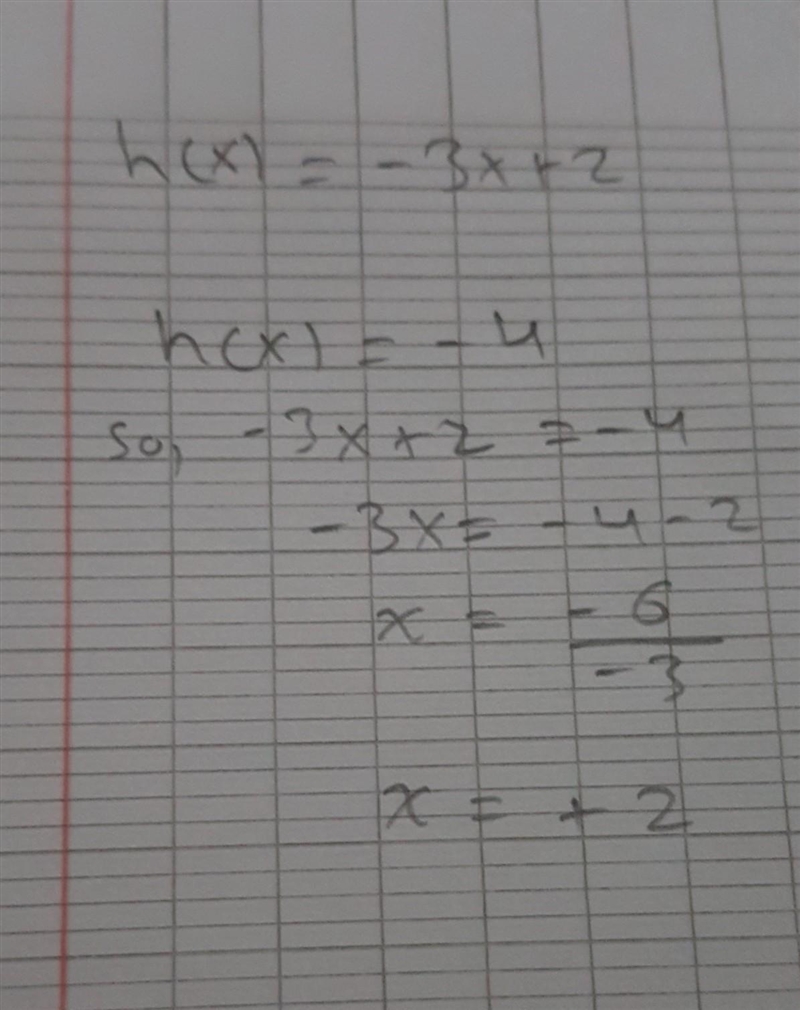 h(x) = -3x+2
h(x) = -4
so, -3x+2 = -4
-3x = -4-2
x = -6/-3
x = +2